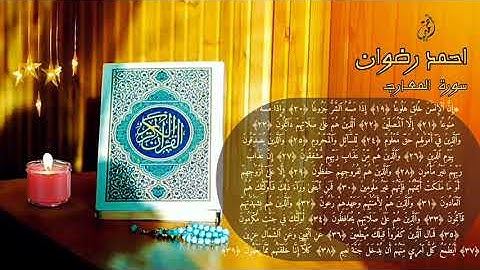 احمد رضوان
سورة المعارج
القرآن الكريم
إِنَّ الْإِنْسَنَ خُلِقَ هَلُوعًا ﴿١٩﴾ إِذَا مَسَّهُ الشَّرُّ جَزُوعًا ﴿٢٠﴾ وَإِذَا مَسَّهُ
مَنُوعًا ﴿٢١﴾ إِلَّا الْمُصَلِّينَ ﴿٢٢﴾ الَّذِينَ هُمْ عَلَى صَلَاتِهِمْ دَائِمُونَ ﴿٢٣﴾
وَالَّذِينَ فِي أَمْوَلِهِمْ حَقٌّ مَعْلُومٌ ﴿٢٤﴾ لِلسَّائِلِ وَالْمَحْرُومِ ﴿٢٥﴾ وَالَّذِينَ يُصَدِّقُونَ
بِيَوْمِ الدِّينِ ﴿٢٦﴾ وَالَّذِينَ هُمْ مِنْ عَذَابِ رَبِّهِمْ مُشْفِقُونَ ﴿٢٧﴾ إِنَّ عَذَابَ
رَبِّهِمْ غَيْرُ مَأْمُونٍ ﴿٢٨﴾ وَالَّذِينَ هُمْ لِفُرُوجِهِمْ حَفِظُونَ ﴿٢٩﴾ إِلَّا عَلَى أَزْوَجِهِمْ
أَوْ مَا مَلَكَتْ أَيْمَنُهُمْ فَإِنَّهُمْ غَيْرُ مَلُومِينَ ﴿٣٠﴾ فَمَنِ ابْتَغَى وَرَاءَ ذَلِكَ فَأُولَئِكَ هُمُ
الْعَادُونَ ﴿٣١﴾ وَالَّذِينَ هُمْ لِأَمَنَتِهِمْ وَعَهْدِهِمْ رَعُونَ ﴿٣٢﴾ وَالَّذِينَ هُمْ بِشَهَدَتِهِمْ
قَائِمُونَ ﴿٣٣﴾ وَالَّذِينَ هُمْ عَلَى صَلَاتِهِمْ يُحَافِظُونَ ﴿٣٤﴾ أُولَئِكَ فِي جَنَّتٍ مُكْرَمُونَ
﴿٣٥﴾ فَمَالِ الَّذِينَ كَفَرُوا قِبَلَكَ مُهْطِعِينَ ﴿٣٦﴾ عَنِ الْيَمِينِ وَعَنِ الشِّمَالِ عِزِينَ
﴿٣٧﴾ أَيَطْمَعُ كُلُّ امْرِئٍ مِنْهُمْ أَنْ يُدْخَلَ جَنَّةَ نَعِيمٍ ﴿٣٨﴾ كَلَّا إِنَّا خَلَقْنَهُمْ مِمَّا يَعْلَمُونَ ﴿٣٩﴾